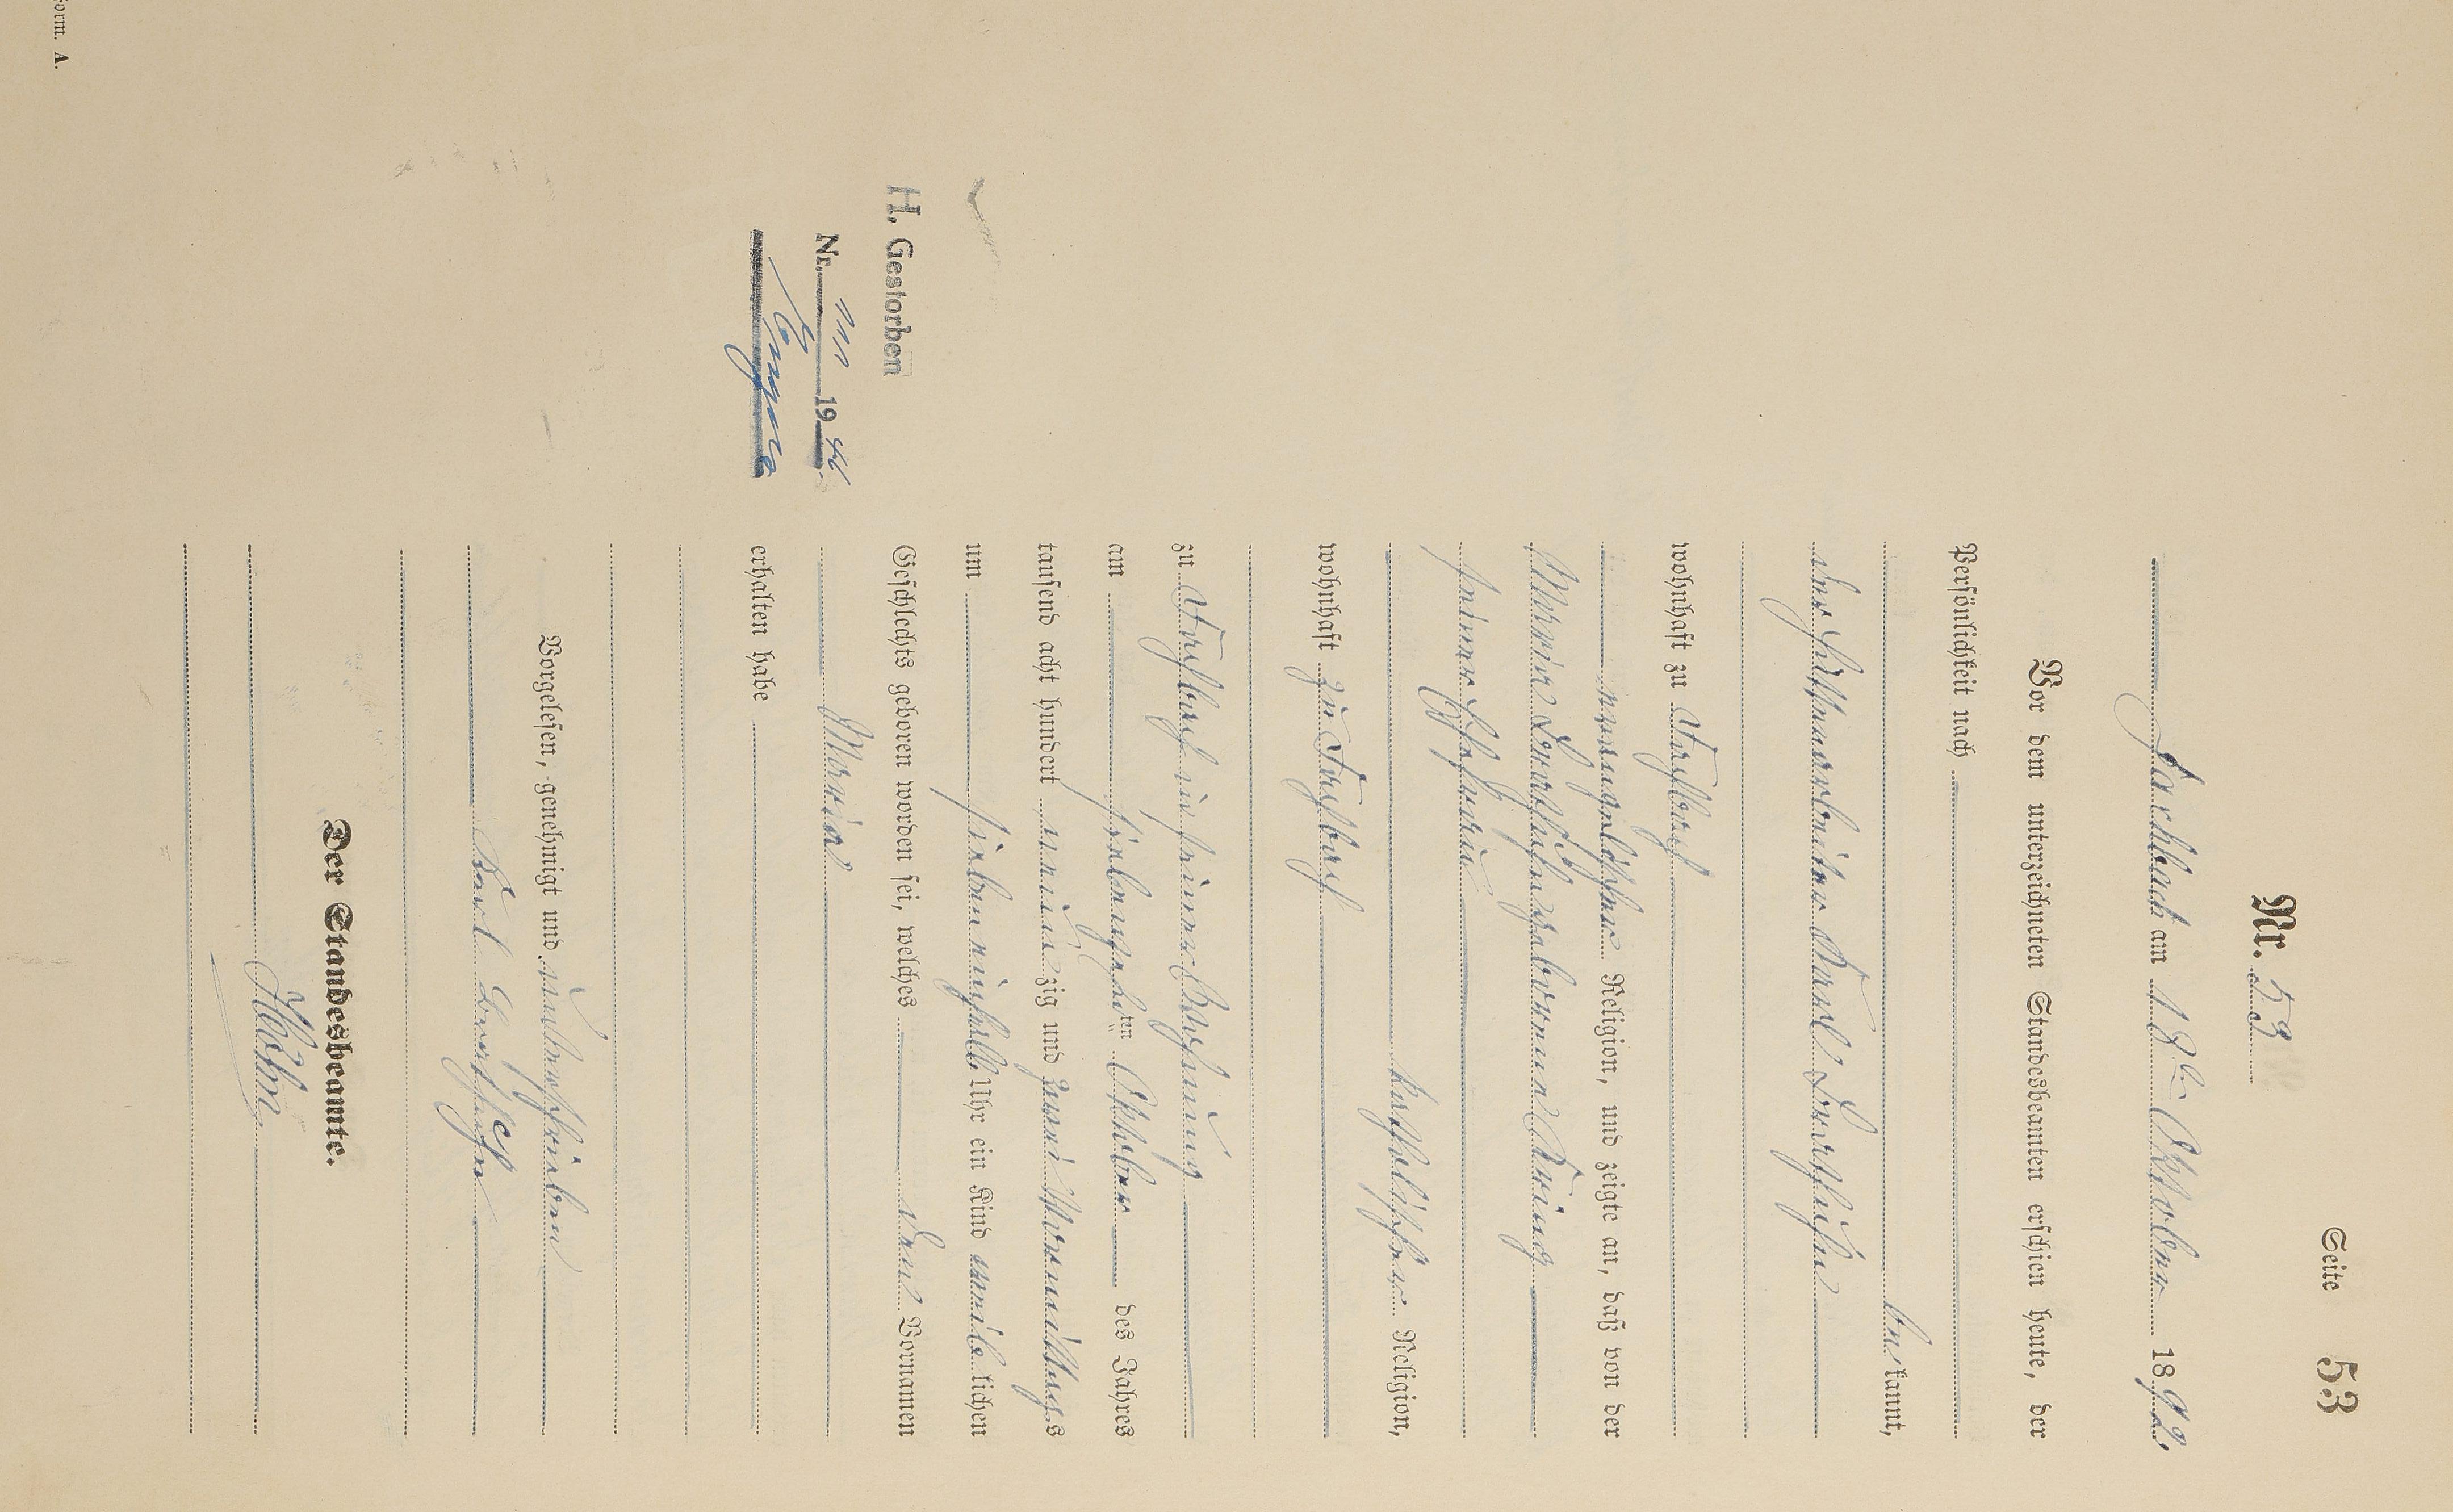 Seite 53
Nr. 53
Fischbach am 18ten Oktober 1892.
Vor dem unterzeichneten Standesbeamten erschien heute, der
Persönlichkeit nach
bekannt,
der Hüttenarbeiter Karl
wohnhaft zu Fischbach
evangelischer Religion, und zeigte an, daß von der
Maria geborene
seiner Ehefrau
katholischer Religion,
wohnhaft zu Fischbach
zu Fischbach in seiner Wohnung
am siebenzehnten Oktober des Jahres
tausend acht hundert neunzig und zwei Vormittags
um sieben einhalb Uhr ein Kind weiblichen
Geschlechts geboren worden sei, welches den Vornamen
Maria
erhalten habe
Vorgelesen, genehmigt und unterschrieben
Karl
Der Standesbeamte.
H. Gestorben
Nr. 19 44
Form. A.